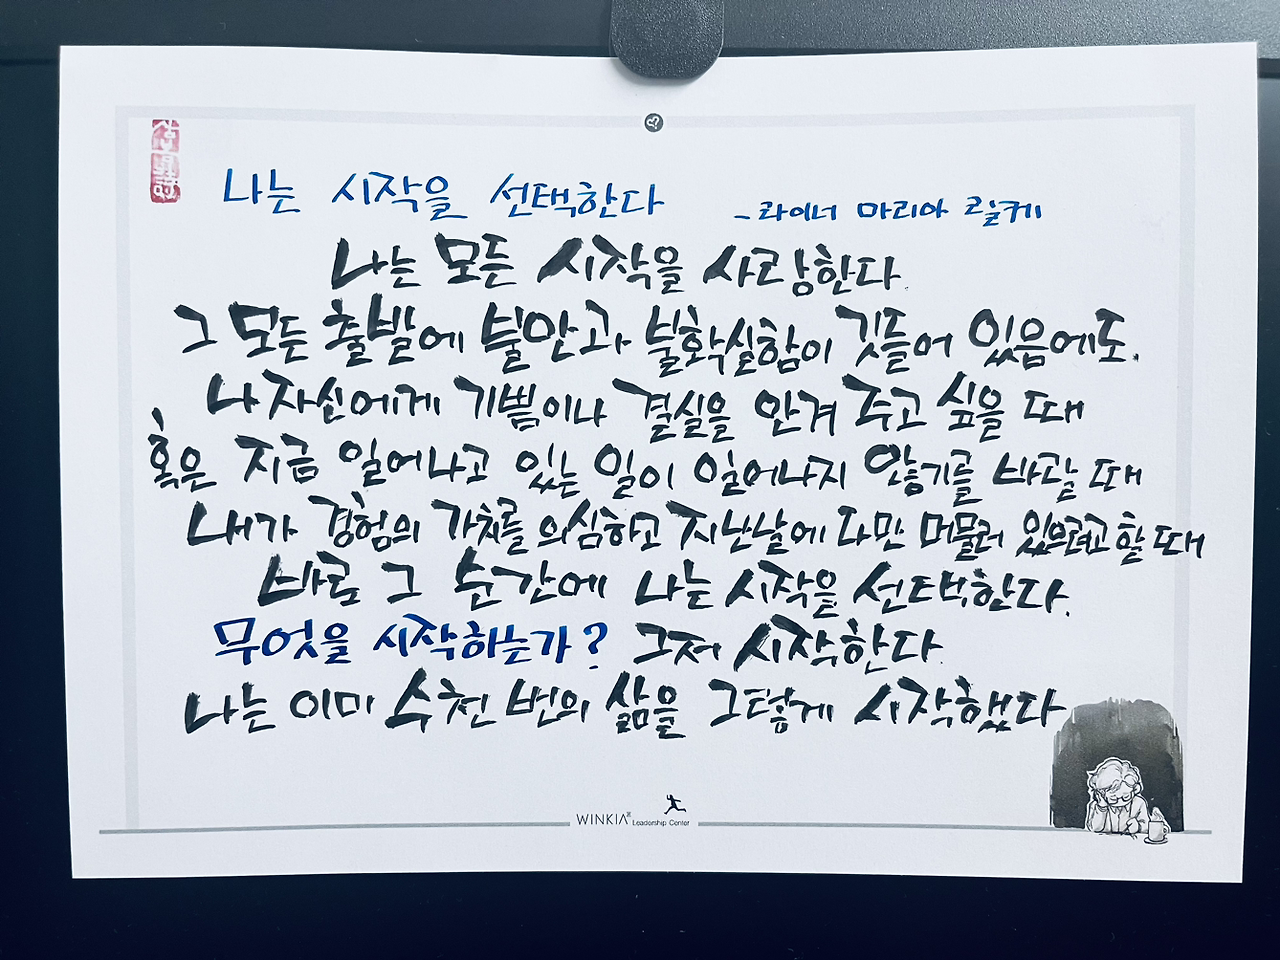 나는 시작을 선택한다 - 라이너 마리아 릴케
나는 모든 시작을 사랑한다.
그 모든 출발에 불안과 불확실함이 깃들어 있음에도.
나 자신에게 기쁨이나 결실을 안겨 주고 싶을 때
혹은 지금 일어나고 있는 일이 일어나지 않기를 바랄 때
내가 경험의 가치를 의심하고 지난날에 다만 머물러 있으려고 할 때
바로 그 순간에 나는 시작을 선택한다.
무엇을 시작하는가? 그저 시작한다.
나는 이미 수천 번의 삶을 그렇게 시작했다
WINKIA Leadership Center